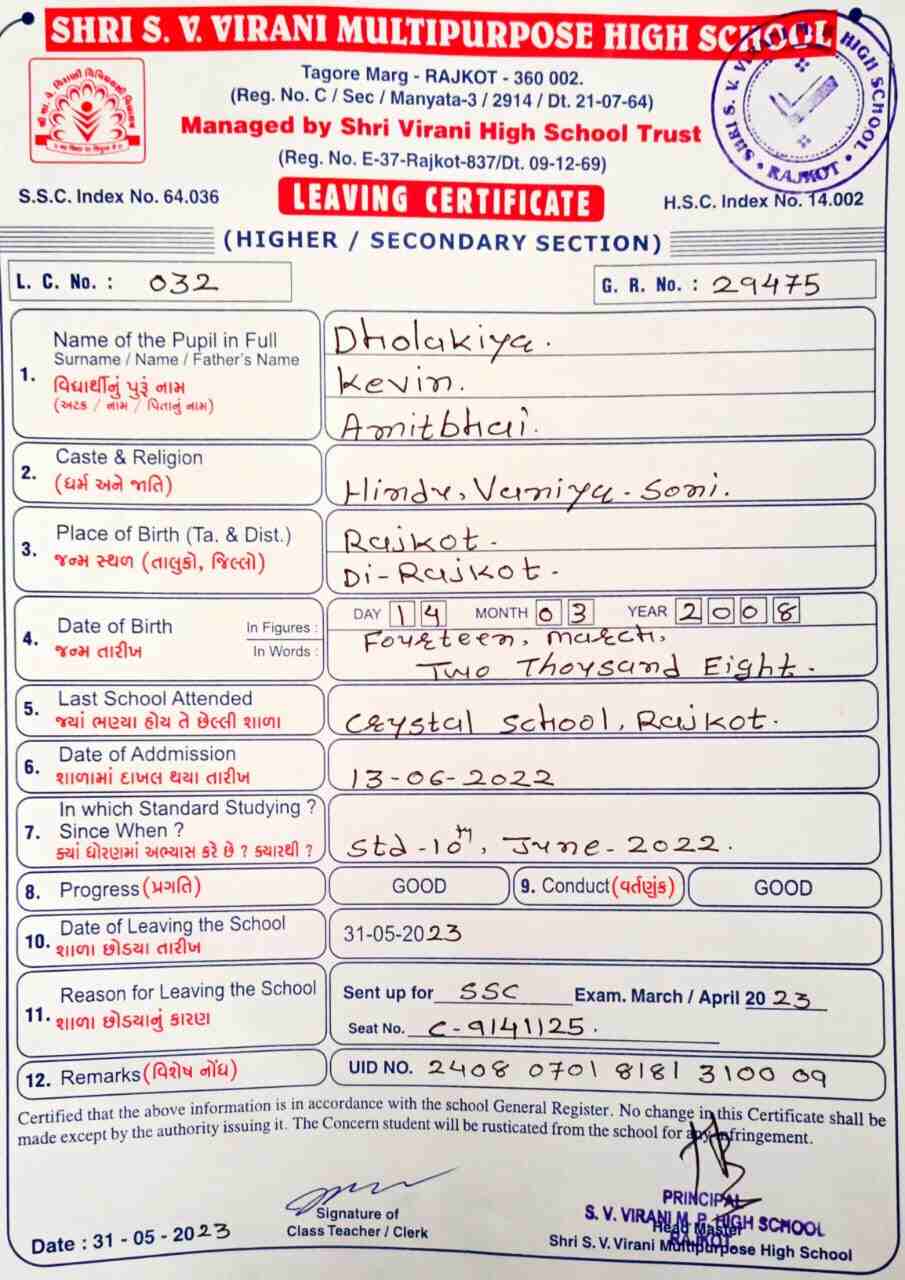 SHRI S. V. VIRANI MULTIPURPOSE HIGH SCHOOL
Tagore Marg - RAJKOT - 360 002.
(Reg. No. C / Sec / Manyata-3 / 2914 / Dt. 21-07-64)
Managed by Shri Virani High School Trust
(Reg. No. E-37-Rajkot-837/Dt. 09-12-69)
SHRI S. V. VIRANI M. P. HIGH SCHOOL • RAJKOT •
S.S.C. Index No. 64.036
LEAVING CERTIFICATE
H.S.C. Index No. 14.002
(HIGHER / SECONDARY SECTION)
L. C. No. : 032
G. R. No. : 29475
1. Name of the Pupil in Full
Surname / Name / Father's Name
વિદ્યાર્થીનું પુરૂં નામ
(અટક / નામ / પિતાનું નામ)
Dholakiya.
Kevin.
Amitbhai.
2. Caste & Religion
(ધર્મ અને જાતિ)
Hindu, Vaniya - Soni.
3. Place of Birth (Ta. & Dist.)
જન્મ સ્થળ (તાલુકો, જિલ્લો)
Rajkot.
Di-Rajkot.
4. Date of Birth
જન્મ તારીખ
In Figures :
In Words :
DAY 14 MONTH 03 YEAR 2008
Fourteen, March,
Two Thoysand Eight.
5. Last School Attended
જ્યાં ભણ્યા હોય તે છેલ્લી શાળા
Crystal School, Rajkot.
6. Date of Addmission
શાળામાં દાખલ થયા તારીખ
13-06-2022
7. In which Standard Studying ?
Since When ?
ક્યાં ધોરણમાં અભ્યાસ કરે છે ? ક્યારથી ?
Std-10th, June-2022.
8. Progress (પ્રગતિ) GOOD 9. Conduct (વર્તણુંક) GOOD
10. Date of Leaving the School
શાળા છોડયા તારીખ
31-05-2023
11. Reason for Leaving the School
શાળા છોડયાનું કારણ
Sent up for SSC Exam. March / April 2023
Seat No. C-9141125.
12. Remarks (વિશેષ નોંધ)
UID NO. 2408 0701 8181 3100 09
Certified that the above information is in accordance with the school General Register. No change in this Certificate shall be
made except by the authority issuing it. The Concern student will be rusticated from the school for any infringement.
Date : 31 - 05 - 2023
Signature of
Class Teacher / Clerk
PRINCIPAL
S. V. VIRANI M. P. HIGH SCHOOL
RAJKOT
Head Master
Shri S. V. Virani Multipurpose High School